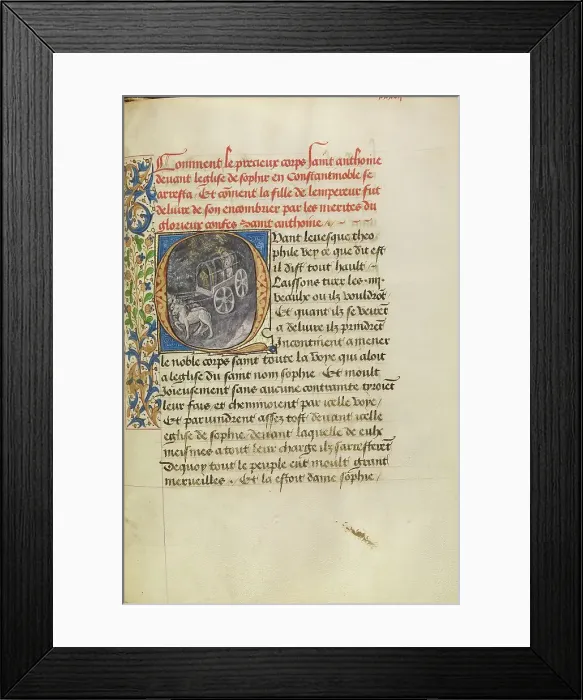 Comment le precieux corps saint anthoine
deuant leglise de sophie en Constantinoble se
arresta. Et cõment la fille de lempereur fut
deliure de son encombrier par les merites du
glorieux confes saint anthoine.
Quant leuesque theo
phile vey ce que dit est
il dist tout hault
Laissons tirer les
veaulx ou ilz vouldrõt
Et quant ilz se veirẽt
a deliure ilz prindrẽt
Incontinent a mener
le noble corps saint toute la voye qui aloit
a leglise du saint nom sophie. Et moult
Joieusement sans aucune contrainte tyroiẽt
leur fais et cheminoient par icelle voye/
Et paruindrent assez tost deuant icelle
eglise de sophie deuant laquelle de eulx
meismes a tout leur charge ilz sarresterẽt
De quoy tout le peuple eut moult grant
merueilles. Et la estoit dame sophie/